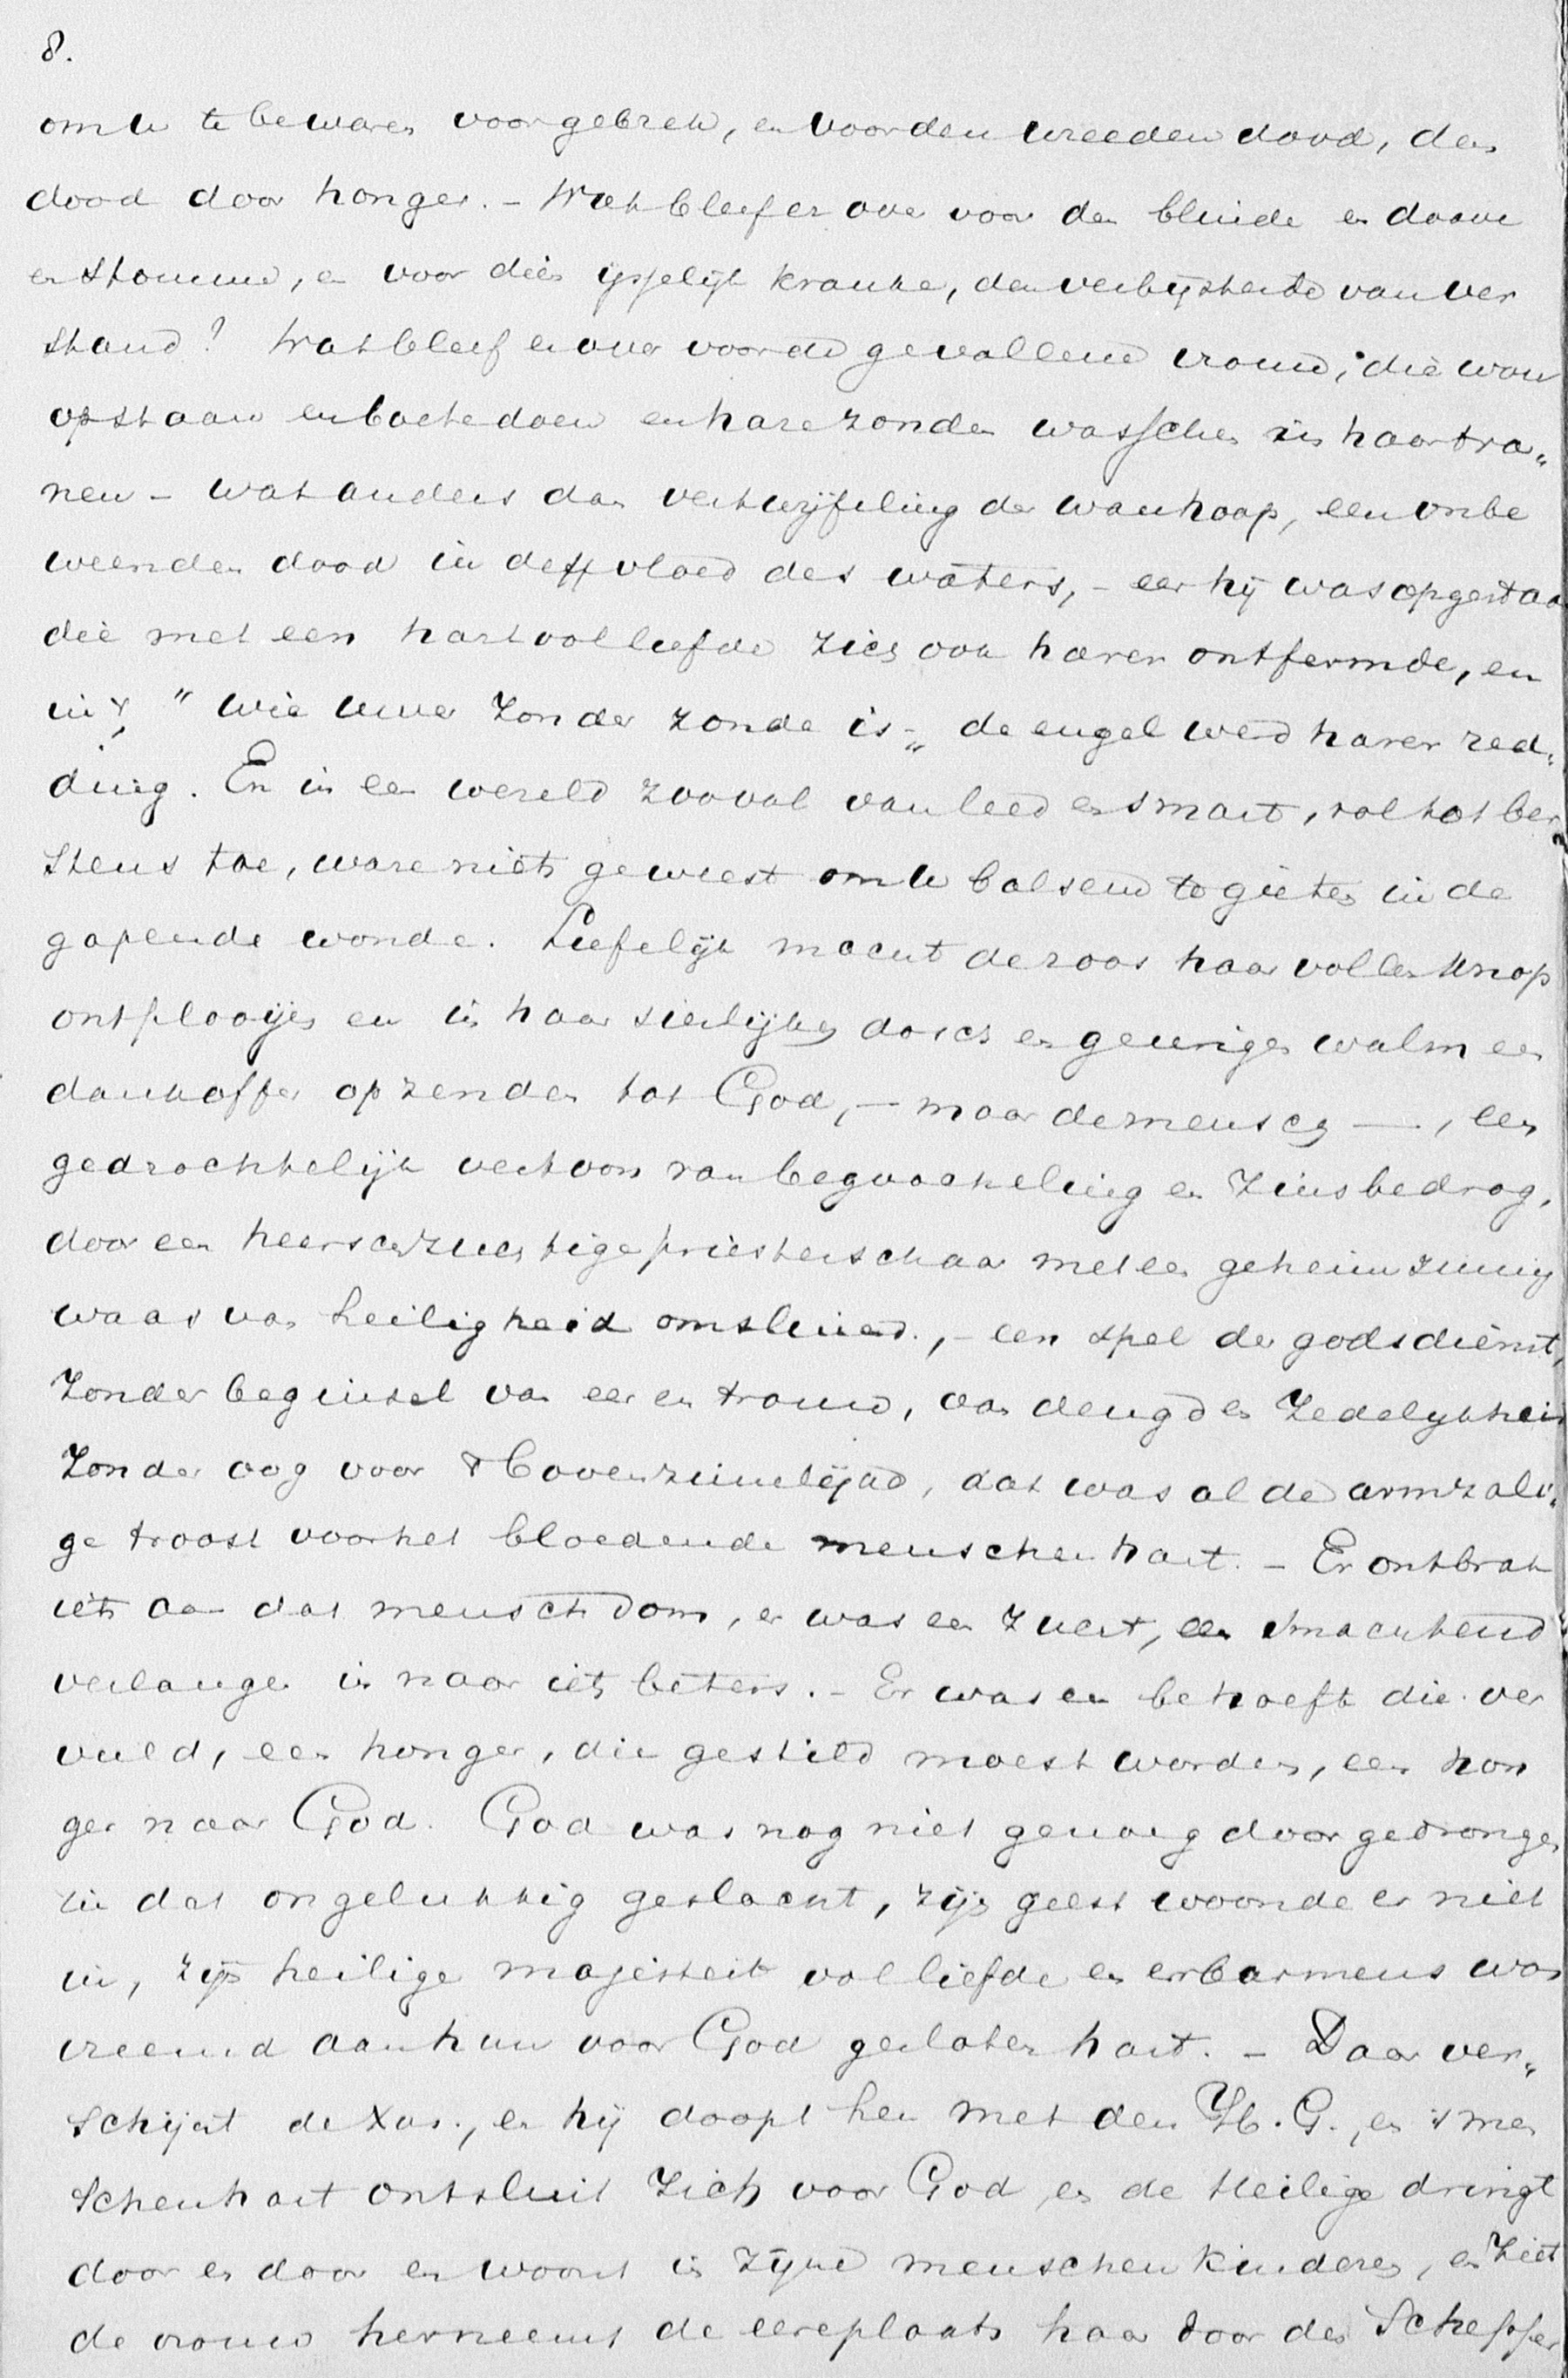 8.
om te bewaren voor gebrek, en voor den wreeden dood, den
dood door honger. – Wat bleef er over voor den blinde en doove
en stomme, en voor dien ijsselijk kranke, den verbijsterde van ver
stand? Wat bleef er over voor de gevallene vrouw, die wou
opstaan en boete doen en hare zonden wasschen in haar tra„
nen – wat anders dan vertwijfeling der wanhoop, een onbe
weenden dood in den vloed des waters, – eer hij was opgestaan
die met een hart vol liefde zich ook harer ontfermde, en
in 't „ wie uwer zonder zonde is „ de engel werd harer red„
ding. En in een wereld zoo vol van leed en smart, vol tot ber„
stens toe, ware niets geweest om balsem te gieten in de
gapende wonde. Liefelijk mocht de roos haar vollen knop
ontplooijen en in haar sierlijken dosch en geurigen walm een
dankoffer opzenden tot God, – maar de mensch –, een
gedrochtelijk vertoon van begoocheling en zinsbedrog,
door een heerschzuchtige priesterschaar met een geheimzinnig
waas van heiligheid omsluierd, – een spel der godsdienst,
zonder beginsel van eer en trouw, van deugd en zedelijkheid
zonder oog voor 't bovenzinnelijke, dat was al de armzali„
ge troost voor het bloedende menschenhart. – Er ontbrak
iets aan dat menschdom, er was een zucht, een smachtend
verlangen in naar iets beters. – Er was een behoefte die ver
vuld, een honger, die gestild moest worden, een hon
ger naar God. God was nog niet genoeg doorgedrongen
in dat ongelukkig geslacht, zijn geest woonde er niet
in, zijn heilige majesteit vol liefde en erbarmens was
vreemd aan hun voor God gesloten hart. – Daar ver„
schijnt de Xus., en hij doopt hen met den H. G., en 's men
schenhart ontsluit zich voor God, en de Heilige dringt
door en door en woont in zijne menschenkinderen, en ziet
de vrouw herneemt de eereplaats haar door den Schepper